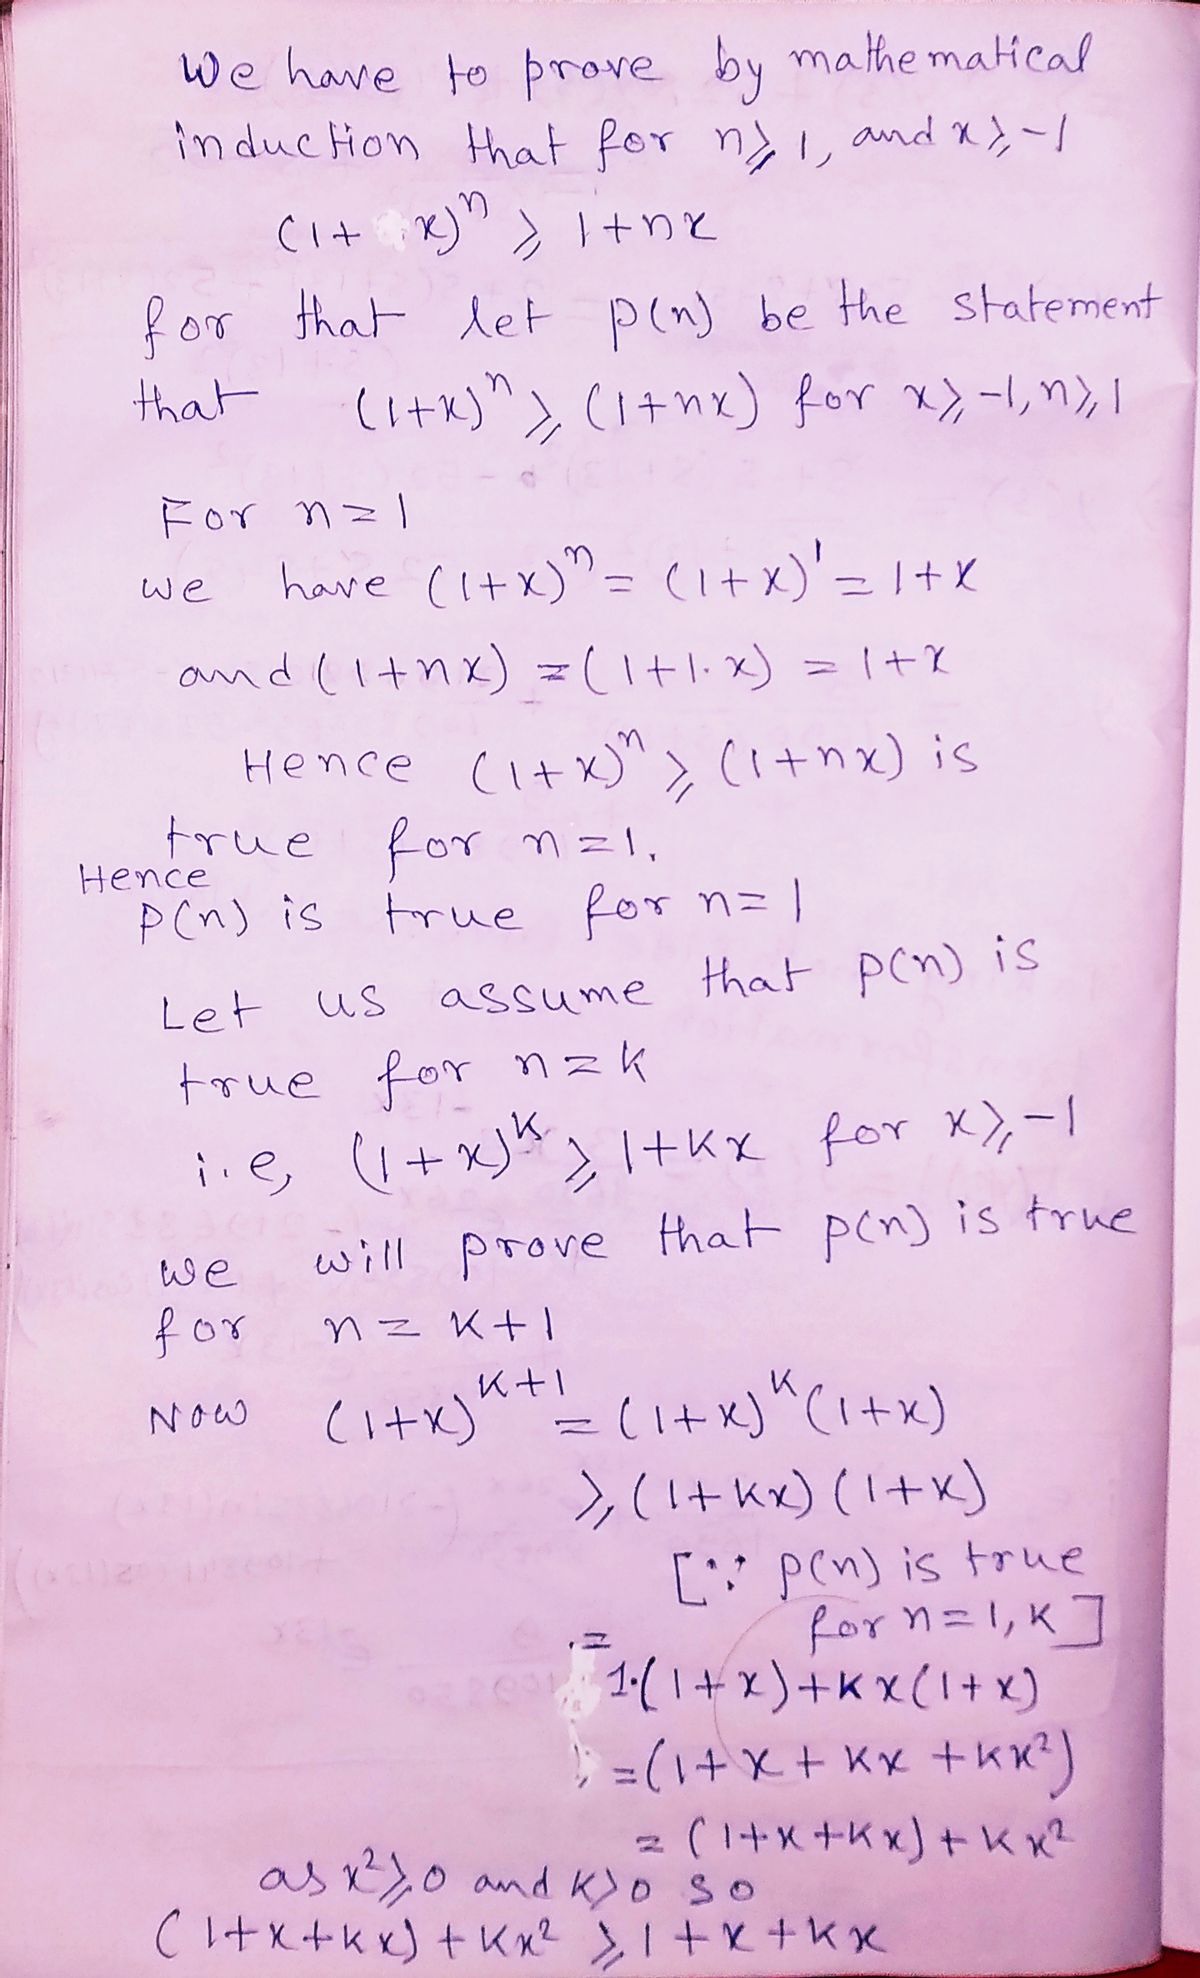 We have to prove by mathematical
induction that for n ≥ 1, and x ≥ -1
(1+ x)ⁿ ≥ 1+nx
for that let p(n) be the statement
that (1+x)ⁿ ≥ (1+nx) for x ≥ -1, n ≥ 1
For n = 1
we have (1+x)ⁿ = (1+x)¹ = 1+x
and (1+nx) = (1+1·x) = 1+x
Hence (1+x)ⁿ ≥ (1+nx) is
true for n=1.
Hence
P(n) is true for n=1
Let us assume that p(n) is
true for n = k
i.e, (1+x)ᵏ ≥ 1+kx for x ≥ -1
we will prove that p(n) is true
for n = k+1
Now (1+x)ᵏ⁺¹ = (1+x)ᵏ(1+x)
≥ (1+kx) (1+x)
[∵ p(n) is true
for n=1, k]
=
1·(1+x)+kx(1+x)
=(1+x+kx+kx²)
= (1+x+kx)+kx²
as x² ≥ 0 and k>0 so
(1+x+kx)+kx² ≥ 1+x+kx